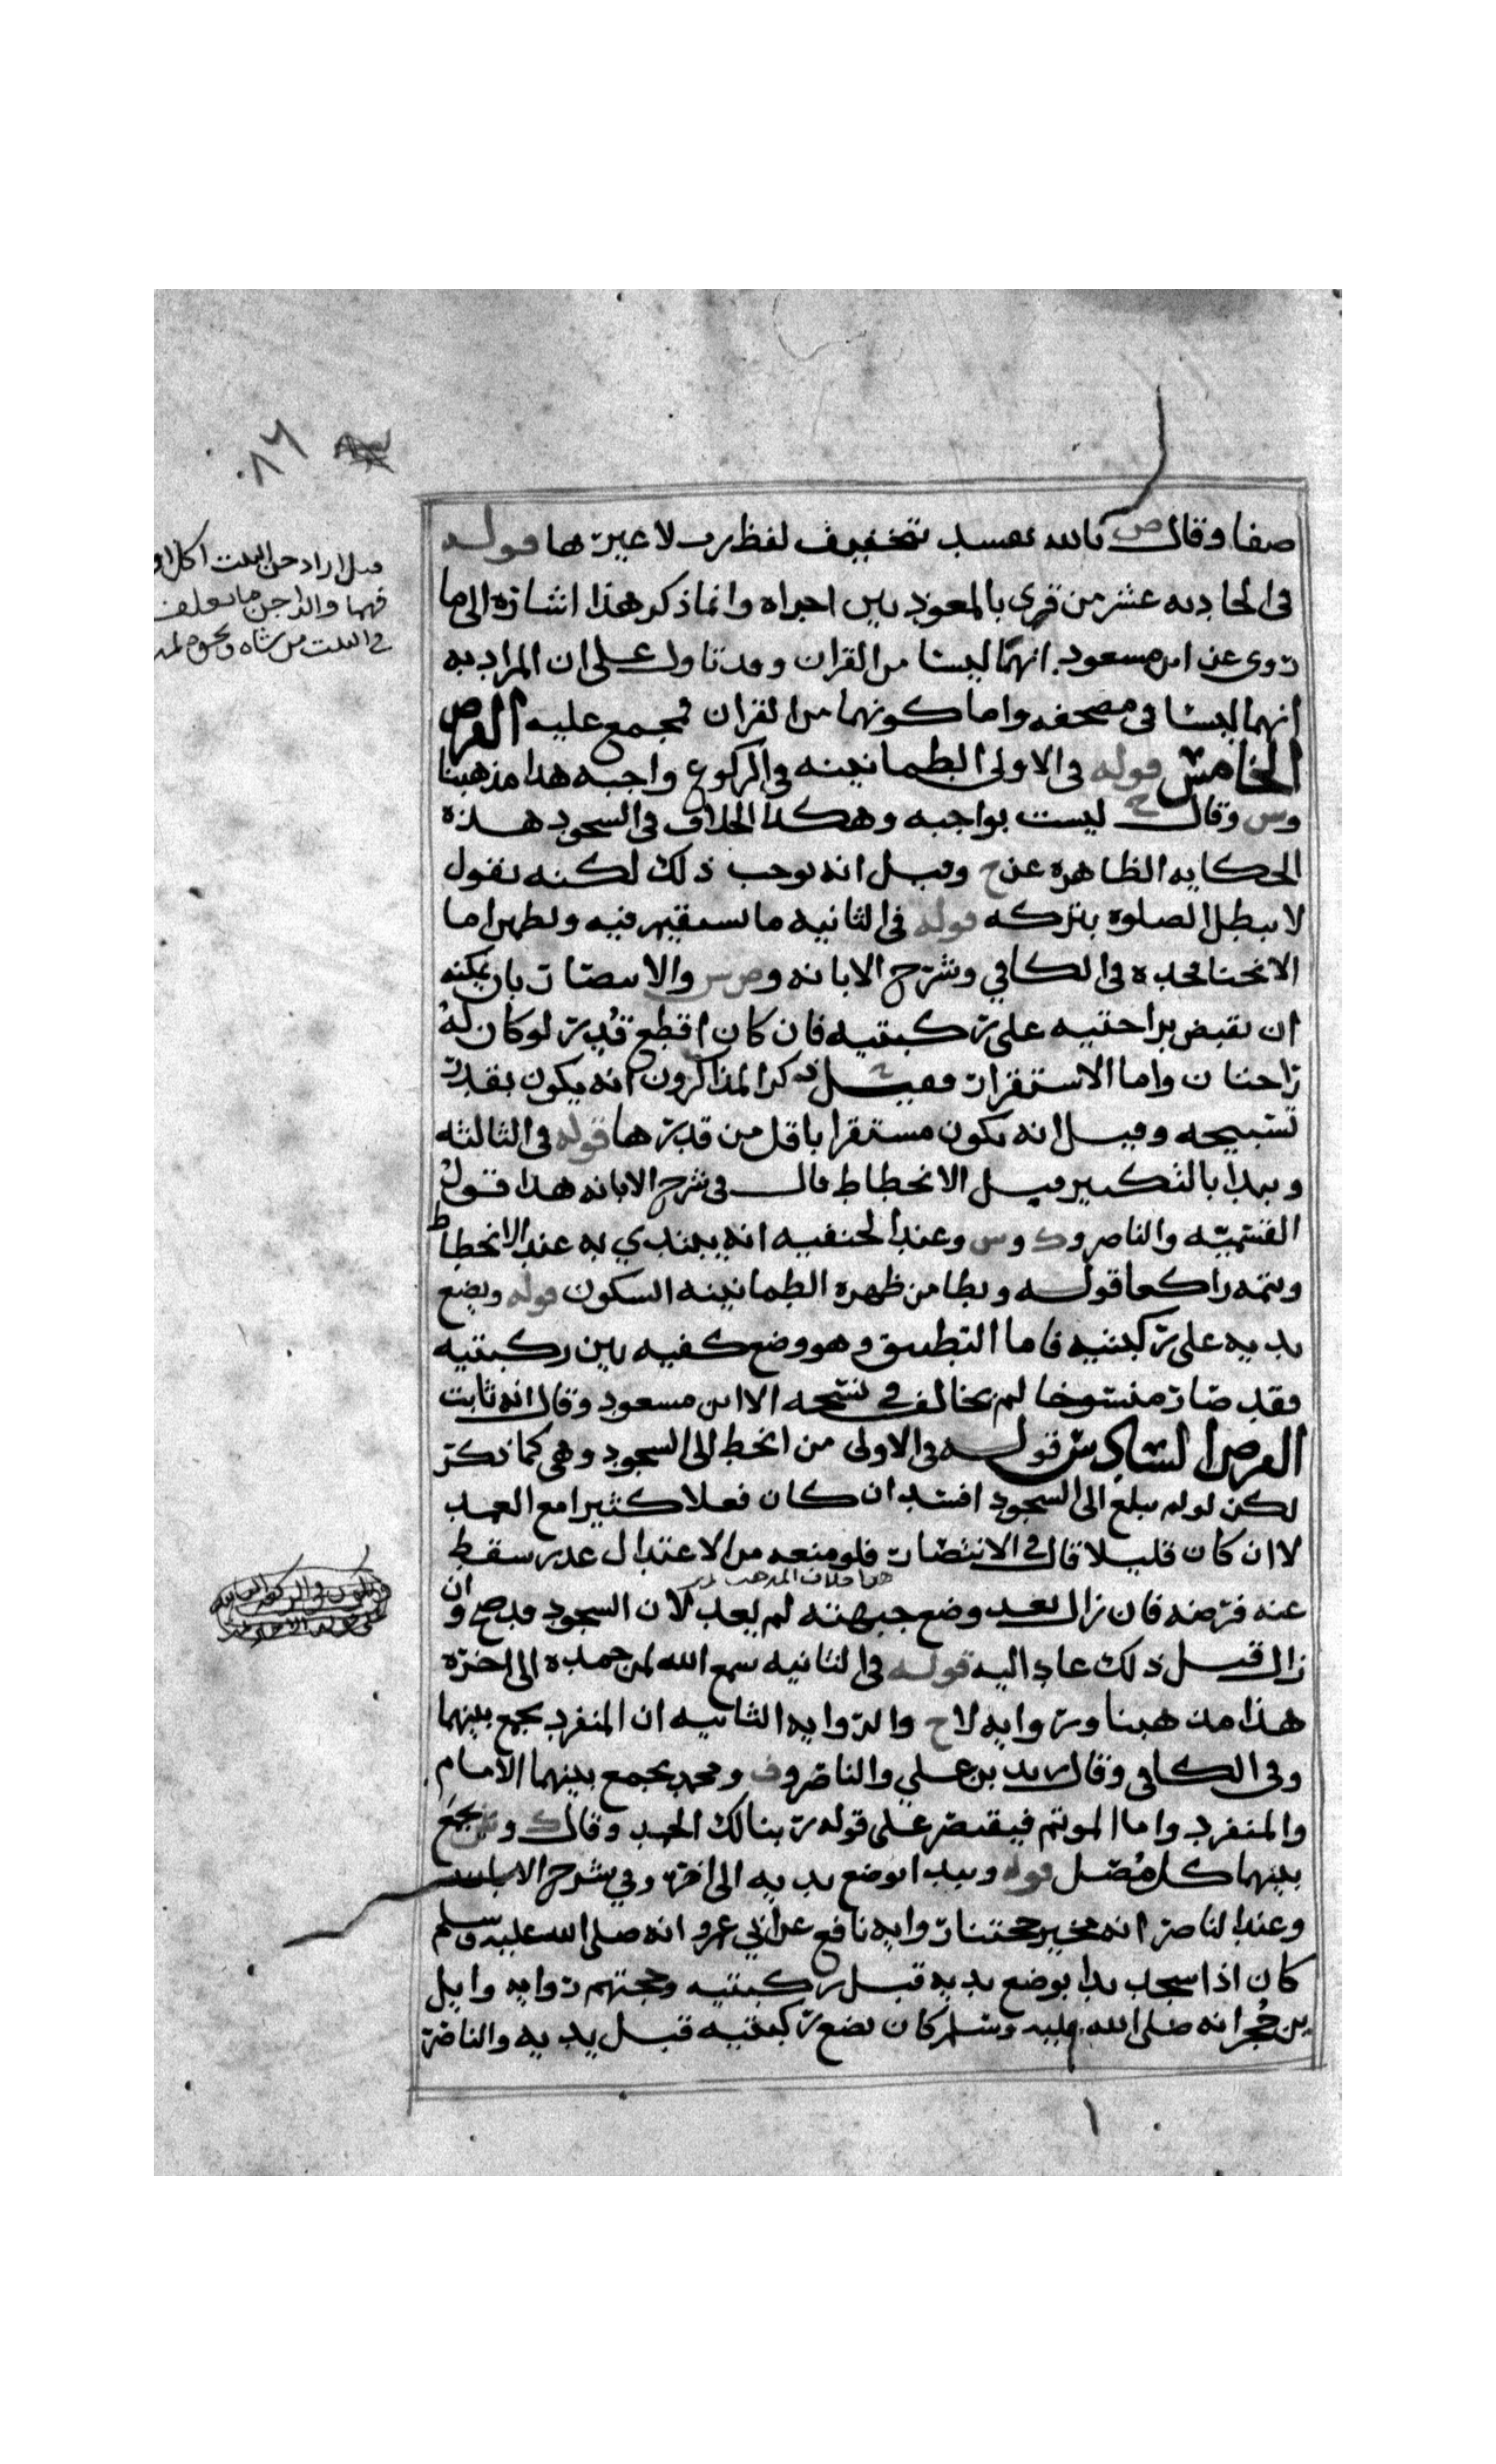 صفا وقال ص بالله تفسد بتخفيف لفظ رب لا غيرها قوله
في الحاديه عشر من قرى بالمعوذتين اجزاه وانما ذكر هذا اشاره الى ما
روى عن ابن مسعود انهما ليستا من القران وقد تاول على ان المراد به
انهما ليستا في مصحفه واما كونهما من القران فمجمع عليه الفرض
الخامس قوله في الاولى الطمانينه في الركوع واجبه هذا مذهبنا
وس وقال ح ليست بواجبه وهكذا الخلاف في السجود هذه
الحكايه الظاهره عن ح وقيل انه يوجب ذلك لكنه يقول
لا تبطل الصلوه بتركه قوله في الثانيه ما يستقر فيه ولطهرا ما
الانحنا فحده في الكافي وشرح الابانه وص س والانتصار بان يمكنه
ان يقبض براحتيه على ركبتيه فان كان اقطع قدر لو كان له
راحتان واما الاستقرار فقيل ذكر المذاكرون انه يكون بقدر
تسبيحه وقيل انه يكون مستقرا باقل من قدرها قوله في الثالثه
ويبدا بالتكبير قبل الانحطاط قال في شرح الابانه هذا قول
القسميه والناصر وك وس وعند الحنفيه انه يبتدي به عند الانحطاط
ويتمه راكعا قوله ويطامن ظهره الطمانينه السكون قوله ويضع
يديه على ركبتيه فاما التطبيق وهو وضع كفيه بين ركبتيه
فقد صار منسوخا لم يخالف في نسخه الا ابن مسعود وقال انه ثابت
الفرض السادس قوله في الاولى من انحط الى السجود وهي كما ذكر
لكن لو لم يبلغ الى السجود افسد ان كان فعلا كثيرا مع العمد
لا ان كان قليلا قال في الانتصار فلو منعه من الاعتدال عذر سقط
هذا خلاف المذهب
عنه فرضه فان زال بعد وضع جبهته لم يعد لان السجود قد صح وان
زال قبل ذلك عاد اليه قوله في الثانيه سمع الله لمن حمده الى اخره
هذا مذهبنا وروايه لاح والروايه الثانيه ان المنفرد يجمع بينهما
وفي الكافي وقال زيد بن علي والناصر وف ومحمد يجمع بينهما الامام
والمنفرد واما الموتم فيقتصر على قوله ربنا لك الحمد وقال ك وش يجمع
بينهما كل مصل قوله ويبدا بوضع يديه الى اخره وفي شرح الابانه
وعند الناصر انه مخير حجتنا روايه نافع عن ابن عمر انه صلى الله عليه وسلم
كان اذا سجد بدا بوضع يديه قبل ركبتيه وحجتهم روايه وايل
بن حجر انه صلى الله عليه وسلم كان يضع ركبتيه قبل يديه والناصر
٨٦
قيل اراد حق البيت اكل او
فيها والداجن ما يعلف
في البيت من شاه ونحوه